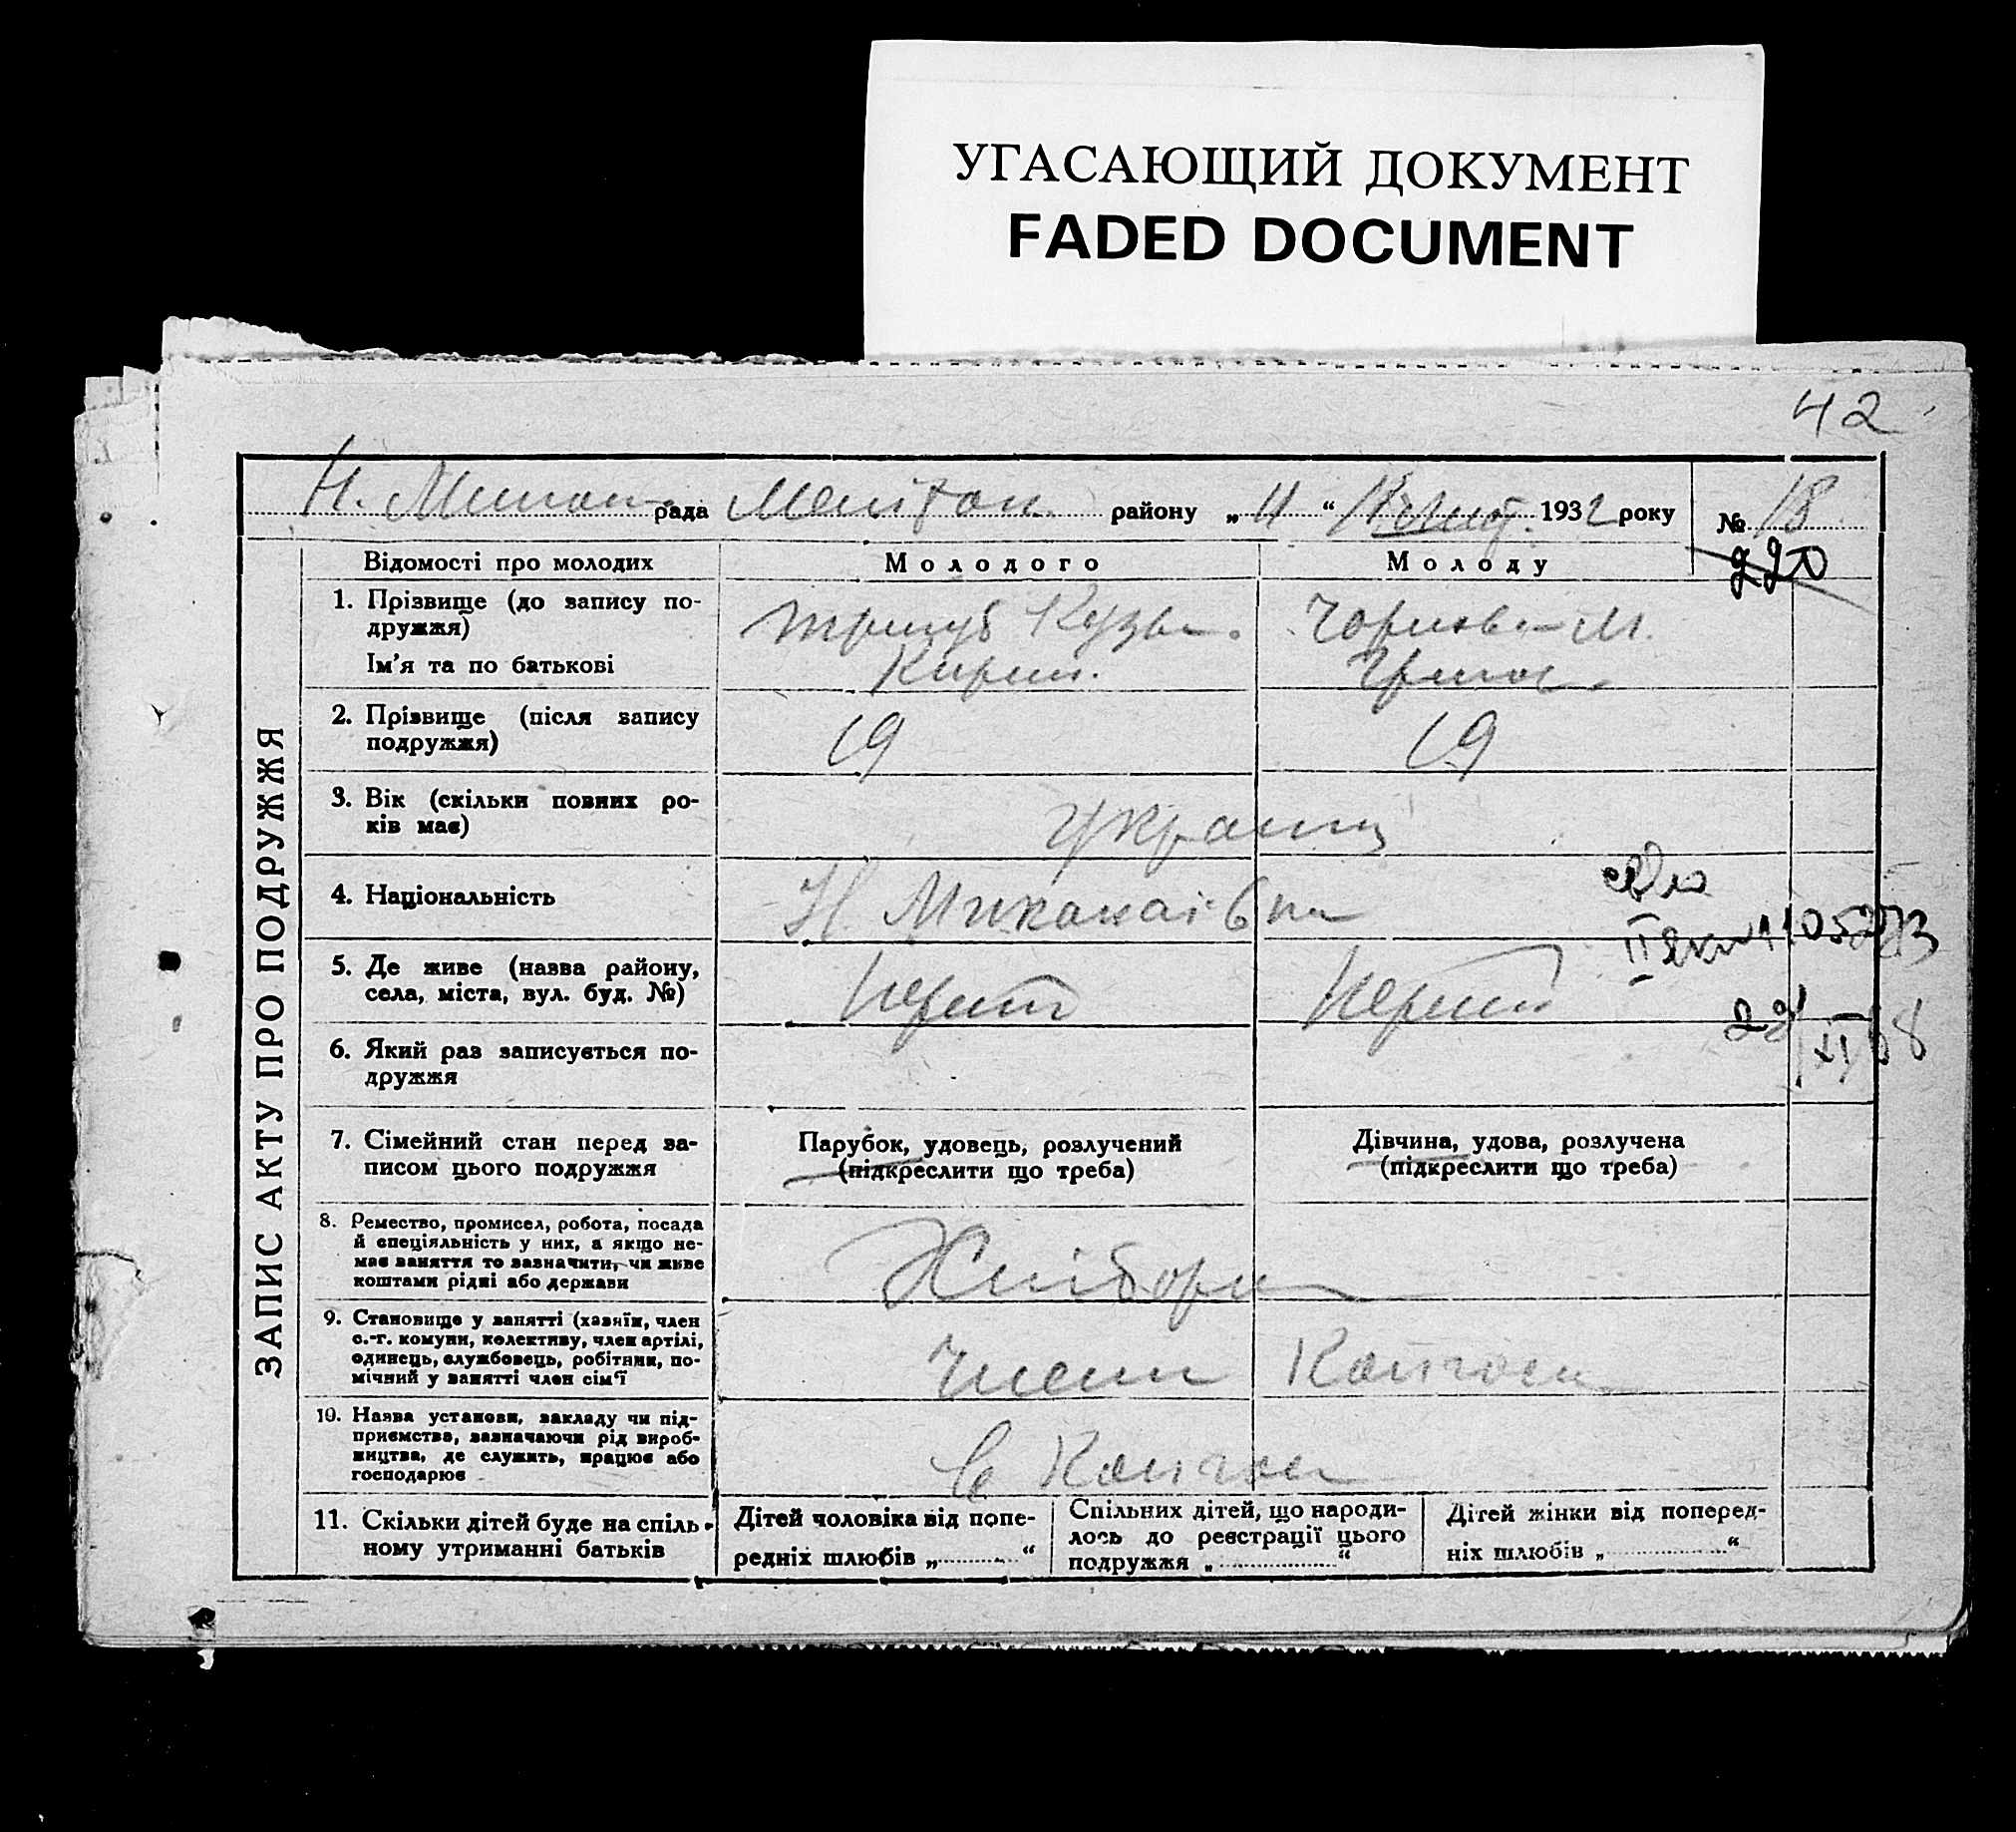 УГАСАЮЩИЙ ДОКУМЕНТ
FADED DOCUMENT
42
Н. рада Меліт району „ 11 “ 1932 року № 18
220
ЗАПИС АКТУ ПРО ПОДРУЖЖЯ
Відомості про молодих Молодого Молоду
1. Прізвище (до запису по-
дружжя)
Ім'я та по батькові
Тригуб Кузьм.
Кирил.
М.
Григ
2. Прізвище (після запису
подружжя)
19 19
3. Вік (скільки повних ро-
ків має)
Украинц
4. Національність
Н. Миколаівка
5. Де живе (назва району,
села, міста, вул. буд. №)
Перший Перший
6. Який раз записується по-
дружжя
7. Сімейний стан перед за-
писом цього подружжя
Парубок, удовець, розлучений
(підкреслити що треба)
Дівчина, удова, розлучена
(підкреслити що треба)
8. Ремество, промисел, робота, посада
й спеціяльність у них, а якщо не-
має заняття то зазначити, чи живе
коштами рідні або держави
Хлібороб
9. Становище у занятті (хазяїн, член
с.-г. комуни, колективу, член артілі,
одинець, службовець, робітник, по-
мічний у занятті член сім'ї
Член Колгосп
10. Назва установи, закладу чи під-
приємства, зазначаючи рід вироб-
ництва, де служить, працює або
господарює
в Колгосп
11. Скільки дітей буде на спіль-
ному утриманні батьків
Дітей чоловіка від попе-
редніх шлюбів „ “
Спільних дітей, що народи-
лось до реєстрації цього
подружжя „ “
Дітей жінки від поперед-
ніх шлюбів „ “